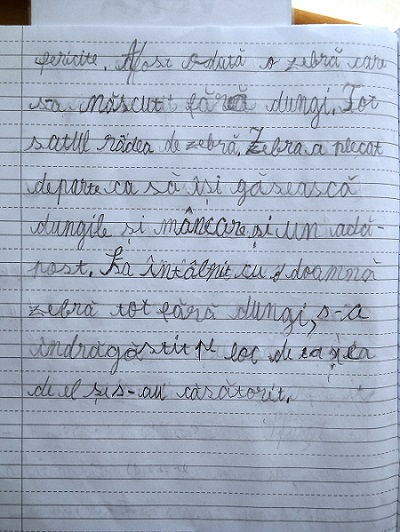 fericite. A fost odată o zebră care
sa născut fără dungi. Tot
satul rădea de zebră. Zebra a plecat
departe ca să își găsească
dungile și mâncare și un adă-
post. La întâlnit cu o doamnă
zebră tot fără dungi, s-a
îndrăgăstit pe loc de ea și ea
de el și s-au căsătorit.